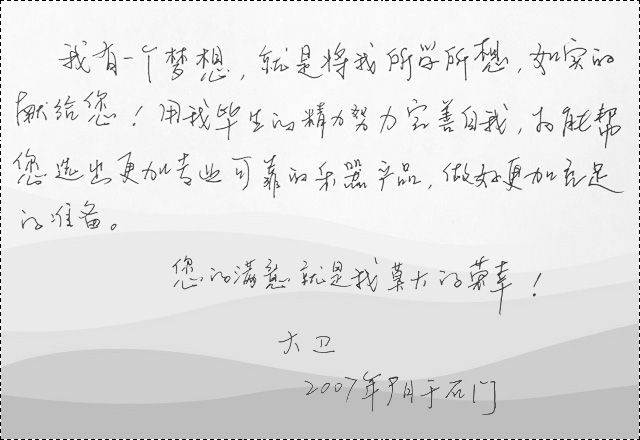 我有一个梦想，就是将我所学所想，如实的
献给您！用我毕生的精力努力完善自我，才能帮
您选出更加专业可靠的乐器产品，做好更加充足
的准备。
您的满意就是我莫大的荣幸！
大卫
2007年9月于石门